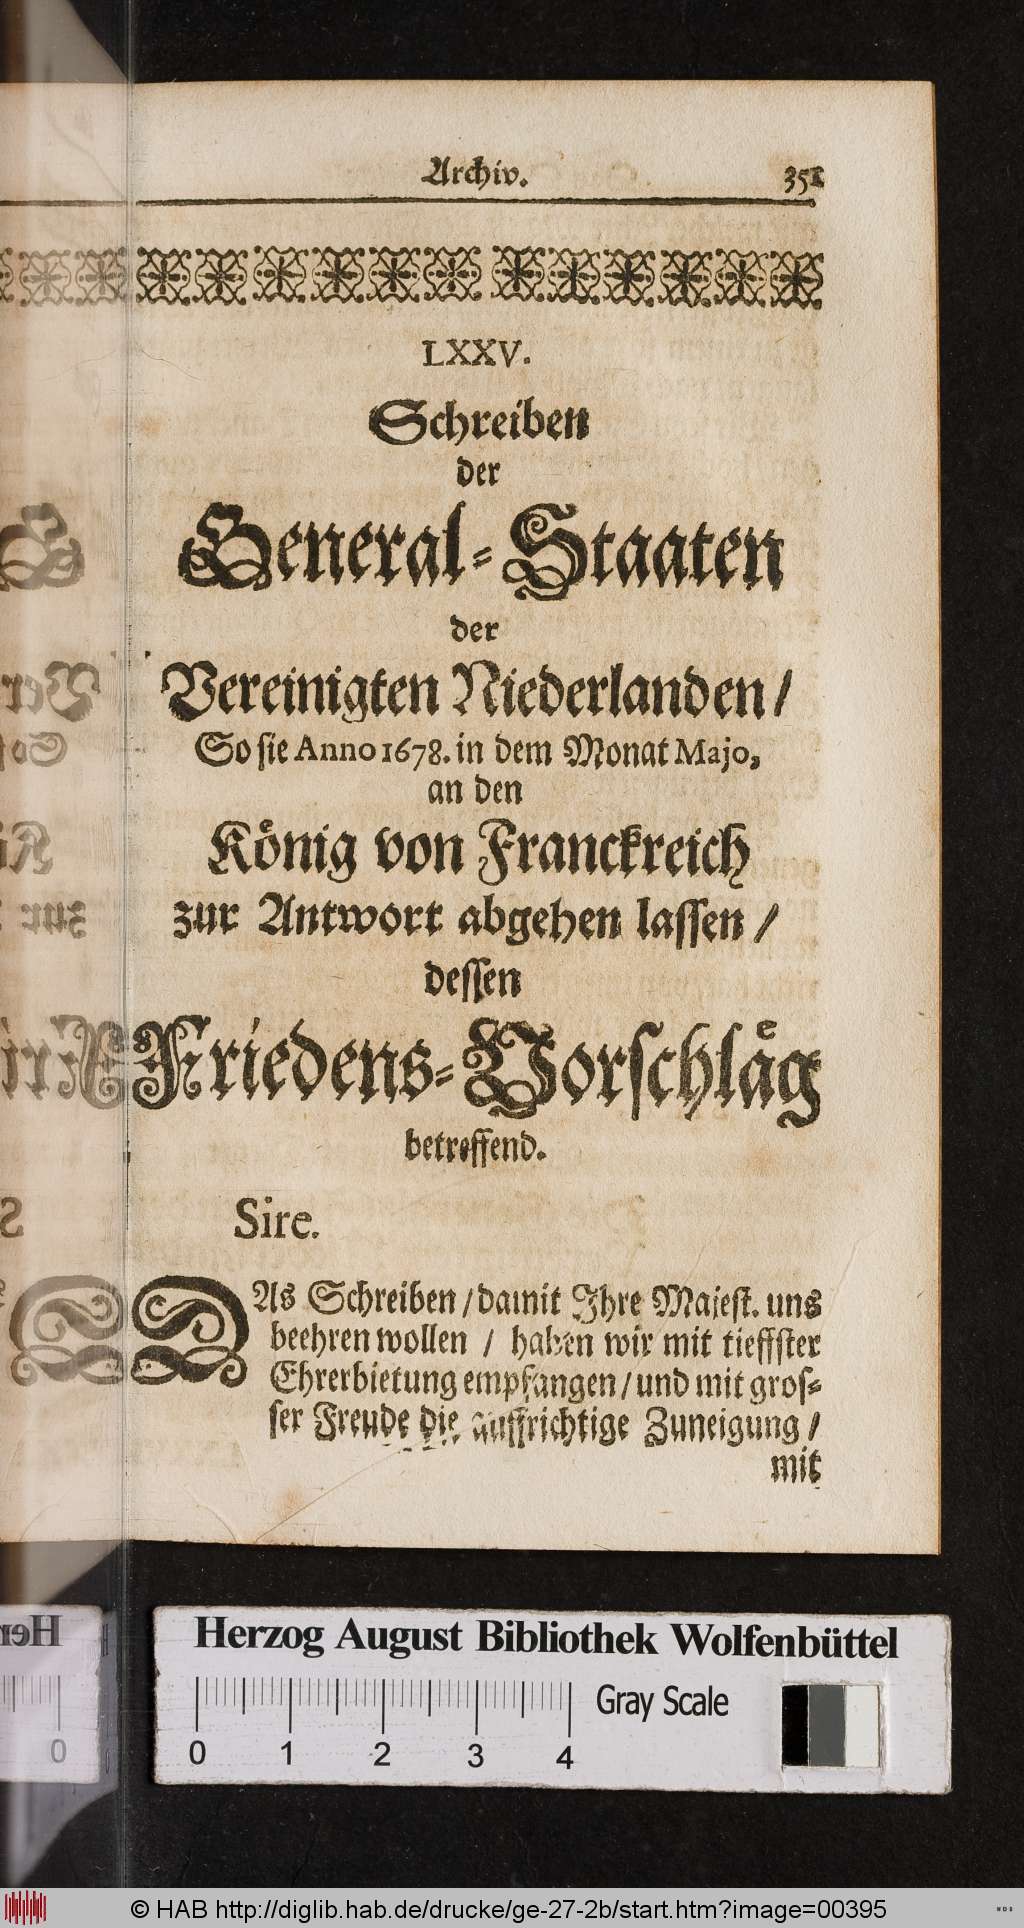 Archiv. 351
LXXV.
Schreiben
der
General-Staaten
der
Vereinigten Niederlanden/
So sie Anno 1678. in dem Monat Majo,
an den
König von Franckreich
zur Antwort abgehen lassen/
dessen
Friedens-Vorschläg
betreffend.
Sire.
DAs Schreiben/damit Ihre Majest. uns
beehren wollen / haben wir mit tieffster
Ehrerbietung empfangen/und mit gros-
ser Freude die auffrichtige Zuneigung/
mit
Herzog August Bibliothek Wolfenbüttel
0 1 2 3 4 Gray Scale
© HAB http://diglib.hab.de/drucke/ge-27-2b/start.htm?image=00395